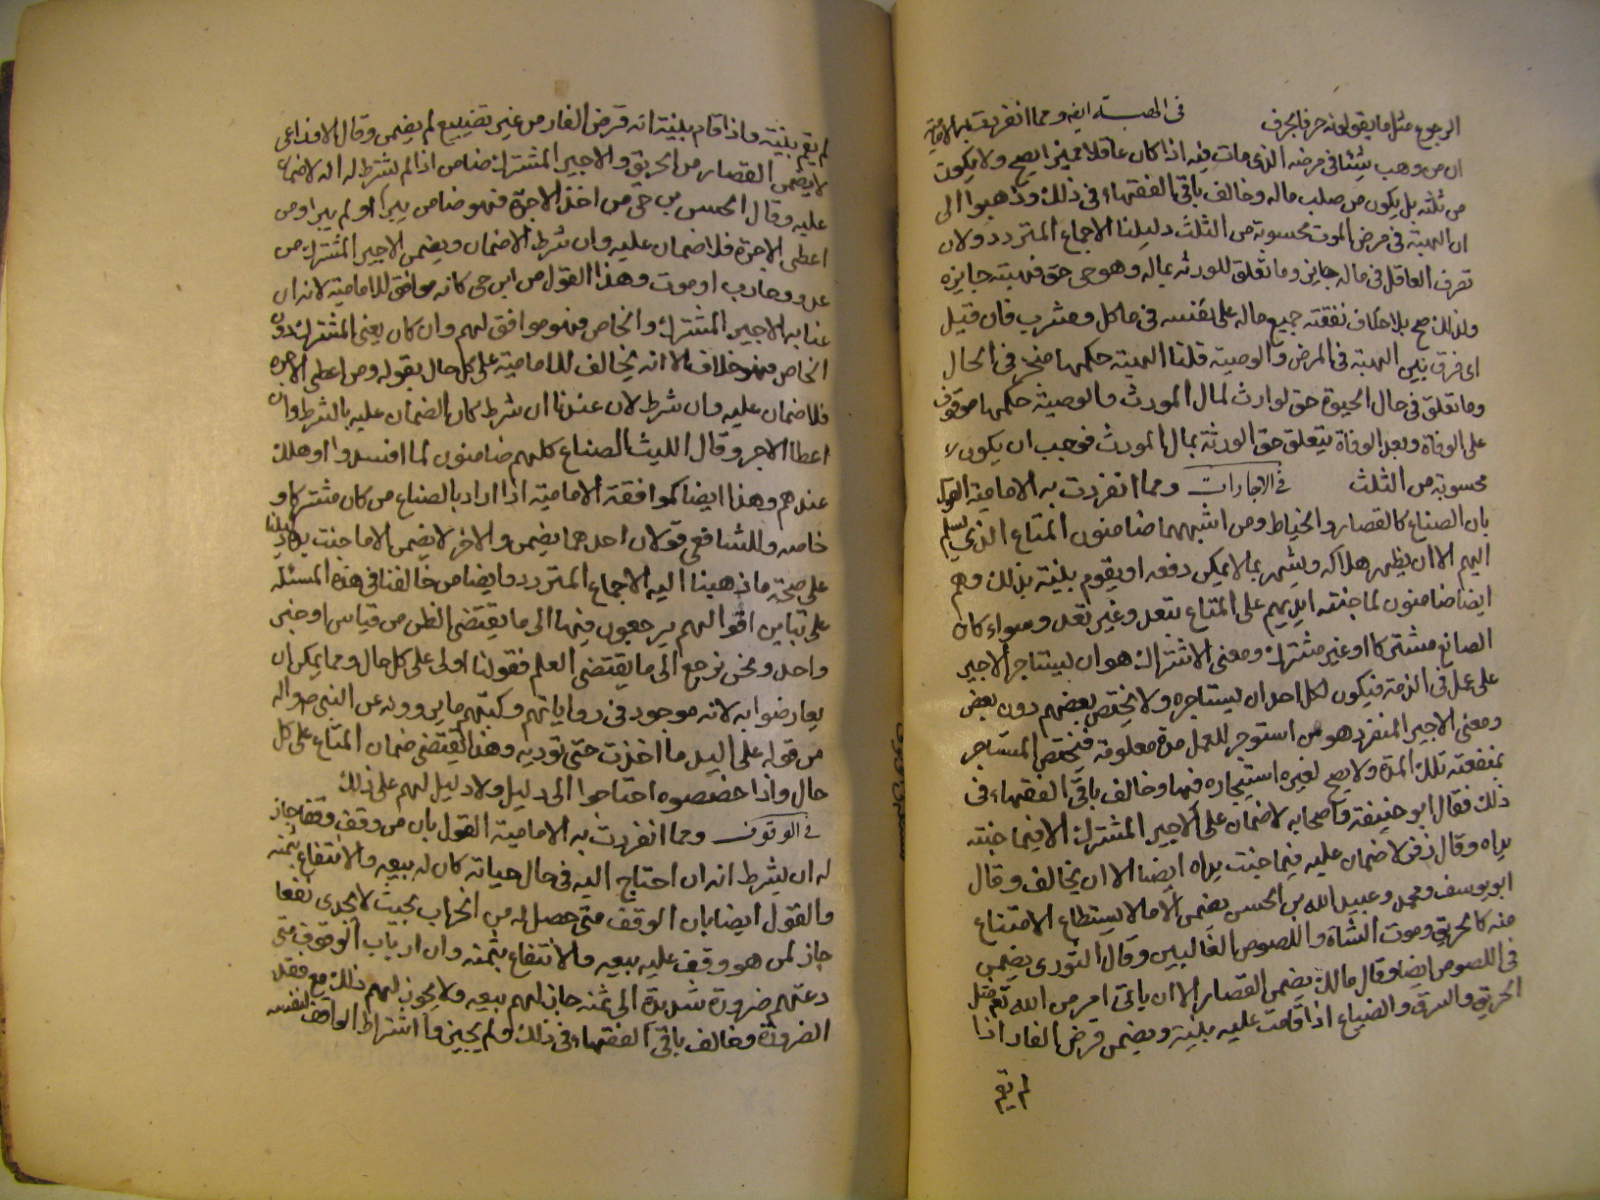 الرجوع مثل ما يقولونه حرفا بحرف في الهبة ايضا ومما انفردت به الامامية
ان من وهب شيئا في مرضه الذي مات فيه اذا كان عاقلا مميزا يصح ولا يكون
من ثلثه بل يكون من صلب ماله وخالف باقي الفقهاء في ذلك وذهبوا الى
ان الهبة في مرض الموت محسوبة من الثلث دليلنا الاجماع المتردد ولان
تصرف العاقل في ماله جايز وما تعلق للورثة بماله وهو حي حق فهبته جايزة
ولذلك صح بلا خلاف نفقته جميع ماله على نفسه في ماكل ومشرب فان قيل
اي فرق بين الهبة في المرض والوصية قلنا الهبة حكمها منجز في الحال
وما تعلق في حال الحيوة حق لوارث لمال المورث والوصية حكمها موقوف
على الوفاة وبعد الوفاة يتعلق حق الورثة بمال المورث فوجب ان يكون
محسوبة من الثلث في الاجارات ومما انفردت به الامامية القول
بان الصناع كالقصار والخياط ومن اشبههما ضامنون المتاع الذي يسلم
اليهم الا ان يظهر هلاكه ويشهر بما لا يمكن دفعه او يقوم بينة بذلك وهم
ايضا ضامنون لما جنته ايديهم على المتاع بتعد وغير تعد وسواء كان
الصانع مشتركا او غير مشترك ومعنى الاشتراك هو ان يستاجر الاجير
على عمل في الذمة فيكون لكل احد ان يستاجره ولا يختص بعضهم دون بعض
ومعنى الاجير المنفرد هو من استوجر للعمل مدة معلومة فيختص المستاجر
بمنفعته تلك المدة ولا يصح لغيره استيجاره فيها وخالف باقي الفقهاء في
ذلك فقال ابو حنيفة واصحابه لا ضمان على الاجير المشترك الا فيما جنته
يداه وقال زفر لا ضمان عليه فيما جنت يداه ايضا الا ان يخالف وقال
ابو يوسف ومحمد وعبيد الله بن الحسن يضمن الا ما لا يستطاع الامتناع
منه كالحريق وموت الشاة واللصوص الغالبين وقال الثوري يضمن
في اللصوص ايضا وقال مالك يضمن القصار الا ان ياتي امر من الله تع مثل
الحريق والسرق والضياع اذا قامت عليه بينة ويضمن قرض الفار اذا
لم يقم
لم يقم بينة واذا قام بينة انه قرض الفار من غير تضييع لم يضمن وقال الاوزاعي
لا يضمن القصار من الحريق والاجير المشترك ضامن اذا لم يشترط له انه لا ضمان
عليه وقال الحسن بن حي من اخذ الاجرة فهو ضامن يبرا او لم يبرا ومن
اعطى الاجرة فلا ضمان عليه وان شرط الاضمان ويضمن الاجير المشترك من
عدو وحارب او موت وهذا القول من ابن حي كانه موافق للامامية لانه ان
عنا به الاجير المشترك والخاص فهو موافق لهم وان كان يعني المشترك دون
الخاص فهو خلاف الا انه يخالف للامامية على كل حال بقوله ومن اعطى الاجرة
فلا ضمان عليه وان شرط لان عندنا ان شرط كان الضمان عليه بالشرط وان
اعطا الاجر وقال الليث الصناع كلهم ضامنون لما افسدوا او هلك
عندهم وهذا ايضا كموافقة الامامية اذا اراد بالصناع من كان مشتركا و
خاصه وللشافعي قولان احدهما يضمن والاخر لا يضمن الا ما جنت يده دليلنا
على صحة ما ذهبنا اليه الاجماع المتردد وايضا من خالفنا في هذه المسئلة
على تباين اقوالهم يرجعون فيها الى ما يقتضي الظن من قياس او خبر
واحد ونحن نرجع الى ما يقتضي العلم فقولنا اولى على كل حال ومما يمكن ان
يعارضوا به لانه موجود في رواياتهم وكتبهم ما يروونه عن النبي ص واله
من قوله على اليد ما اخذت حتى توديه وهذا يقتضي ضمان المتاع على كل
حال واذا خصصوه احتاجوا الى دليل ولا دليل لهم على ذلك
في الوقوف ومما انفردت به الامامية القول بان من وقف وقفا جاز
له ان يشرط انه ان احتاج اليه في حال حياته كان له بيعه والانتفاع بثمنه
والقول ايضا بان الوقف متى حصل له من الخراب بحيث لا يجدي نفعا
جاز لمن هو وقف عليه بيعه والانتفاع بثمنه وان ارباب الوقوف متى
دعتهم ضرورة شديدة الى ثمنه جاز لهم بيعه ولا يجوز لهم ذلك مع فقد
الضرورة وخالف باقي الفقهاء في ذلك ولم يجيزوا اشتراط الواقف لنفسه